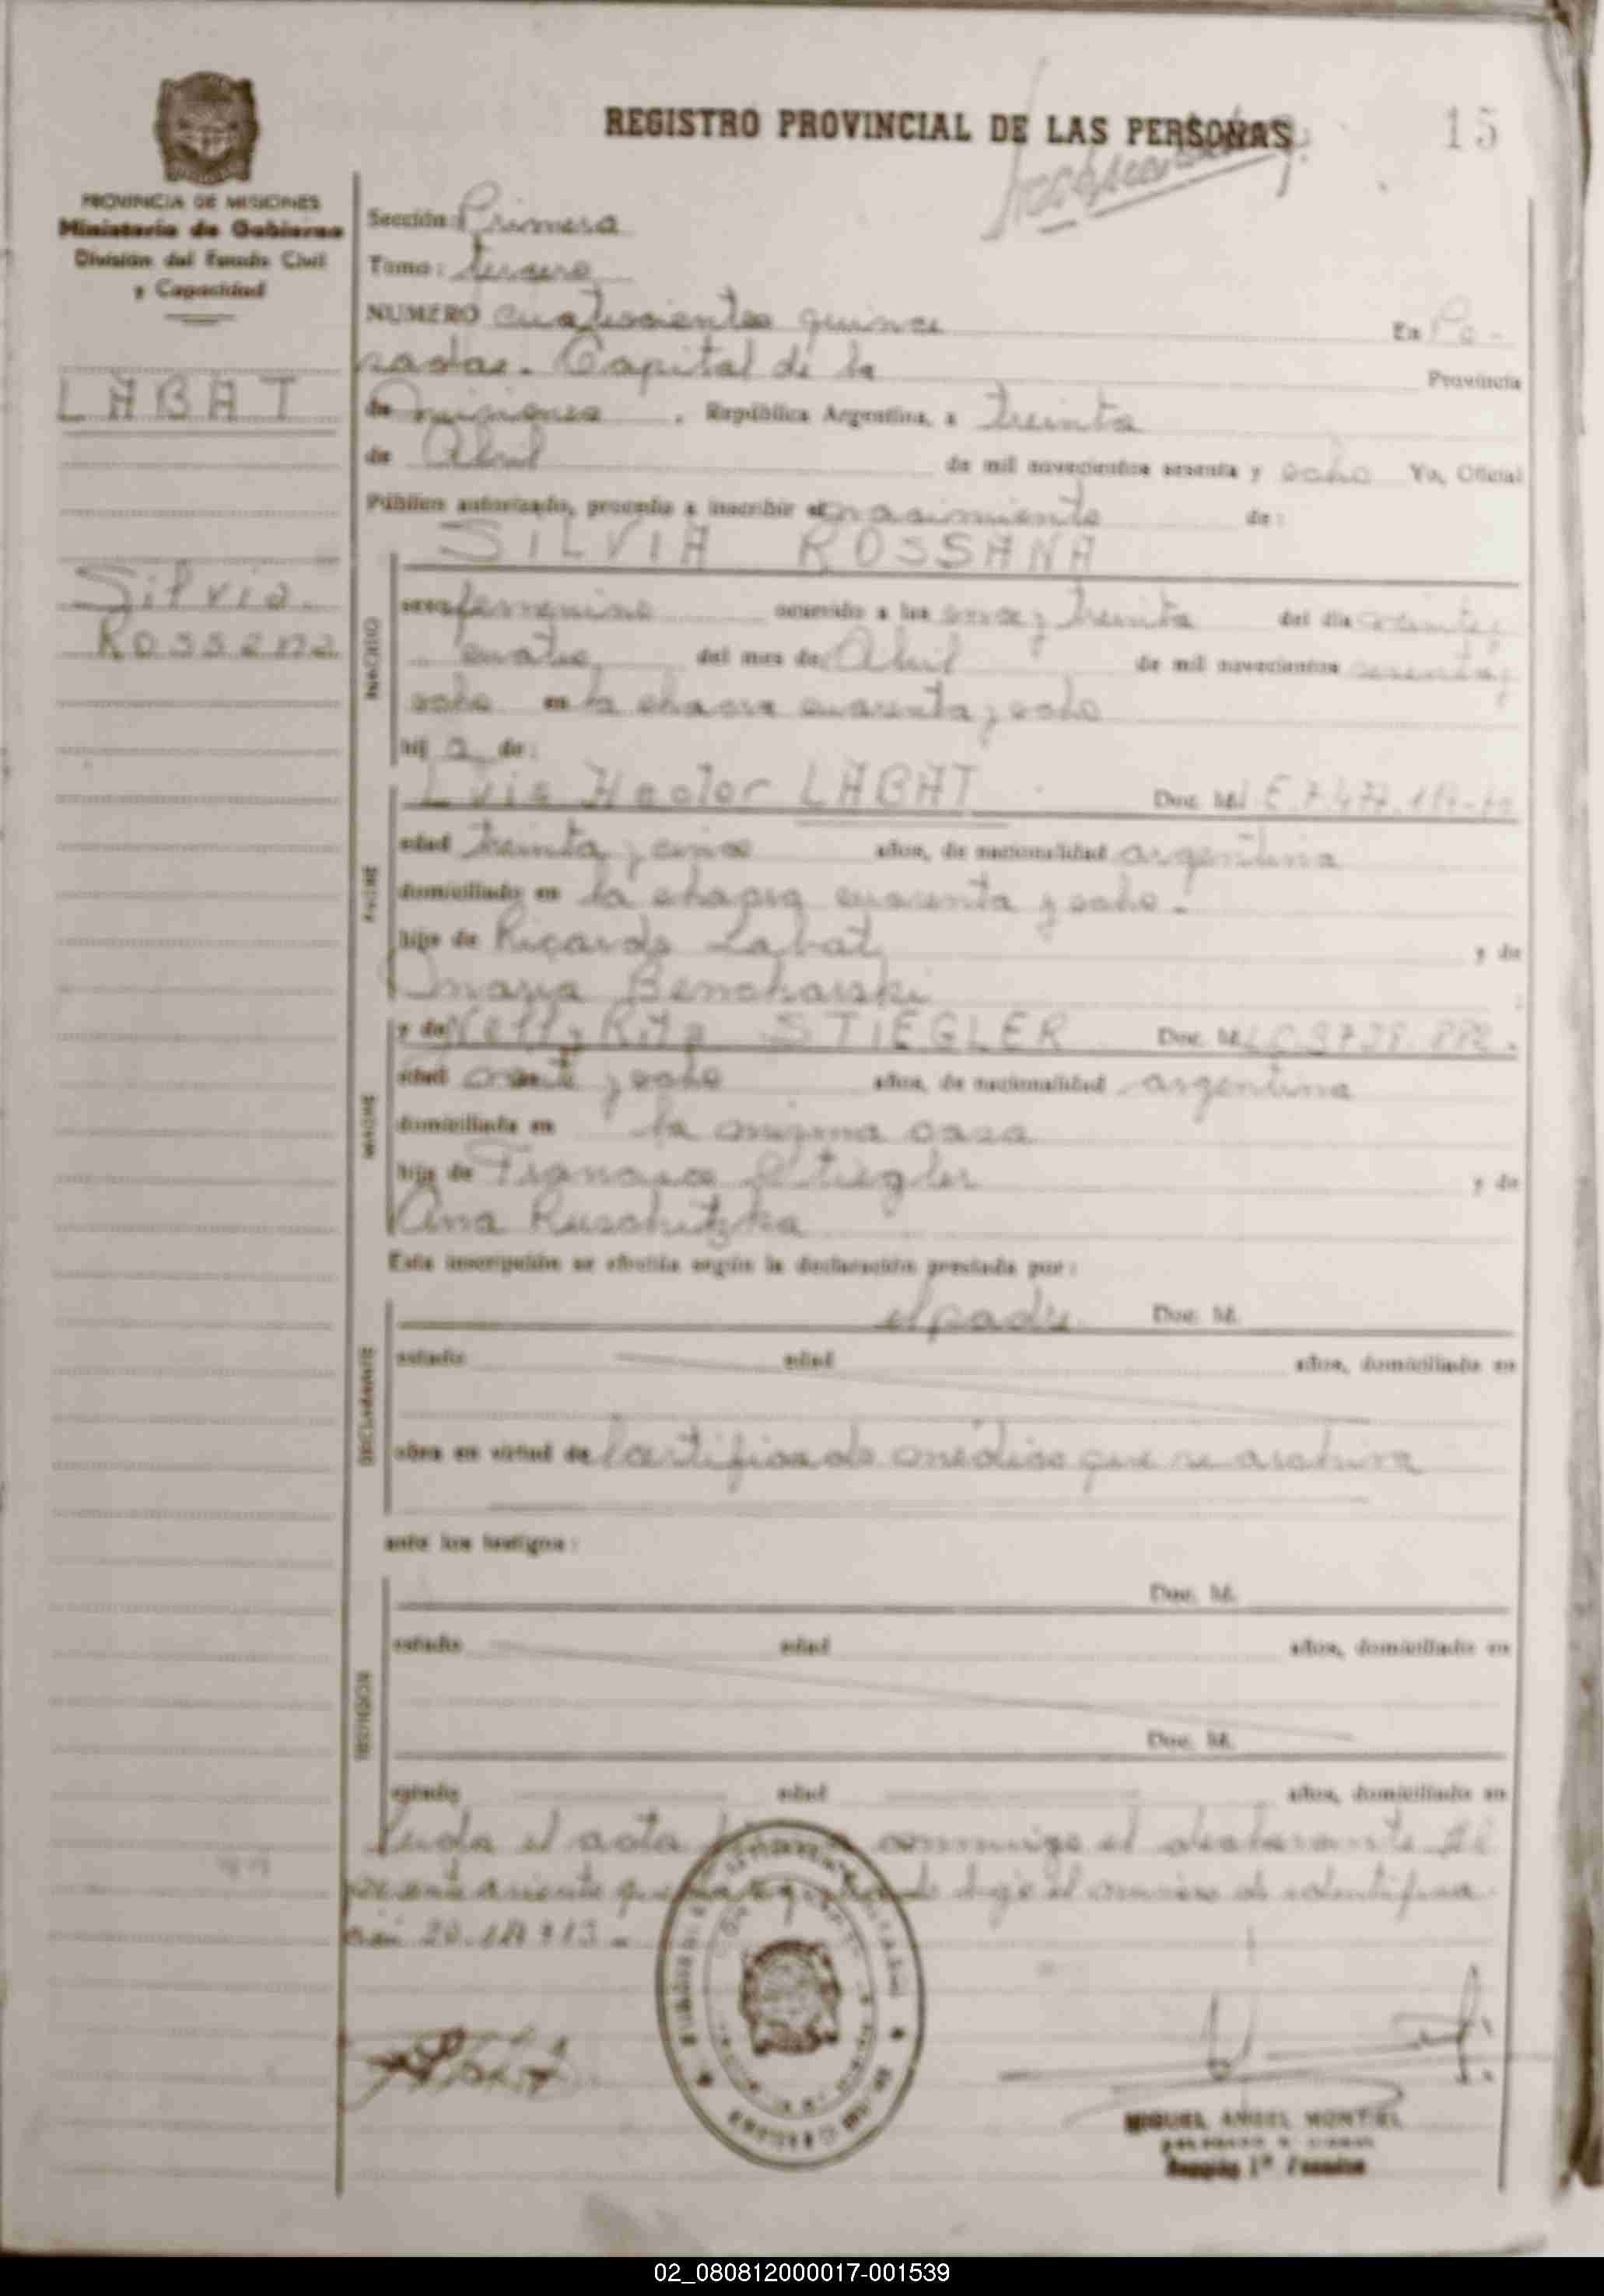 REGISTRO PROVINCIAL DE LAS PERSONAS
15
PROVINCIA DE MISIONES
Ministerio de Gobierno
División del Estado Civil
y Capacidad
LABAT
Silvia
Rossana
Sección: Primera
Tomo: tercero
NUMERO cuatrocientos quince En Po-
sadas. Capital de la Provincia
de Misiones, República Argentina, a treinta
de Abril de mil novecientos sesenta y ocho Yo, Oficial
Público autorizado, procedo a inscribir el nacimiento de:
SILVIA ROSSANA
NACIDO
sexo femenino ocurrido a las once y treinta del día veinte y
cuatro del mes de Abril de mil novecientos sesenta y
ocho en la chacra cuarenta y ocho
hij a de:
PADRE
Luis Hector LABAT Doc. Id. L.E. 7.477.
edad treinta y cinco años, de nacionalidad argentina
domiciliado en la chacra cuarenta y ocho.
hijo de Ricardo Labat y de
Maria
MADRE
y de Nelly Rita STIEGLER Doc. Id. L.C.
edad veinte y ocho años, de nacionalidad argentina
domiciliada en la misma casa
hija de Francisco Stiegler y de
Ana
Esta inscripción se efectúa según la declaración prestada por:
DECLARANTE
el padre Doc. Id.
estado edad años, domiciliado en
obra en virtud de Certificado médico que se archiva
ante los testigos:
TESTIGOS
Doc. Id.
estado edad años, domiciliado en
Doc. Id.
estado edad años, domiciliado en
Leida el acta conmigo el declarante El
presente asiento que bajo el número de identifica
ción 20.
MIGUEL ANGEL MONTIEL
Sección 1ª Posadas
02_080812000017-001539